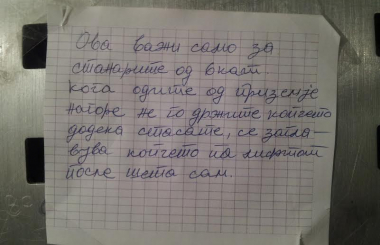 Ова важи само за
станарите од 6 кат
кога одите од приземје
нагоре не го држите копчето
додека стасате, се загла-
вува копчето на лифтот
после шета сам.